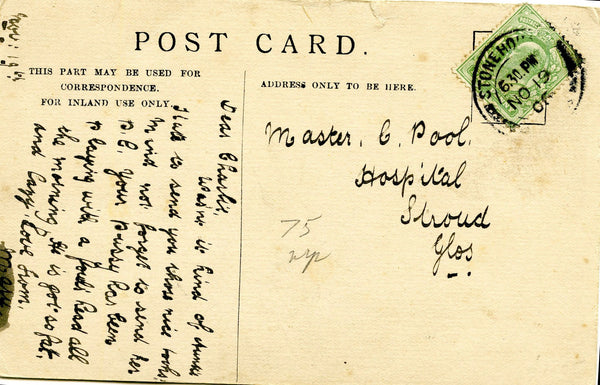 POST CARD.
THIS PART MAY BE USED FOR
CORRESPONDENCE.
FOR INLAND USE ONLY.
ADDRESS ONLY TO BE HERE.
STONEHO
6.30 PM
NO 19
06
Dear Charlie,
Wasn't it kind of
that to send you those nice books.
Mind not forget to send her
P.C. Your Pussy has been
playing with a fowl's head all
the morning He is got so fat,
and lazy. Love from,
Master. C. Pool.
Hospital
Stroud
Glos
75